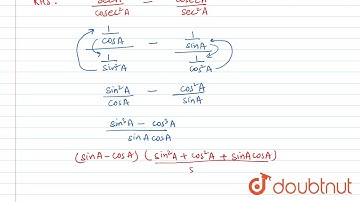 RHS: secA/cosec²A - cosecA/sec²A
1/cosA / 1/sin²A - 1/sinA / 1/cos²A
sin²A/cosA - cos²A/sinA
sin³A - cos³A / sinA cosA
(sinA - cosA) (sin²A + cos²A + sinA cosA) / s
doubtnut